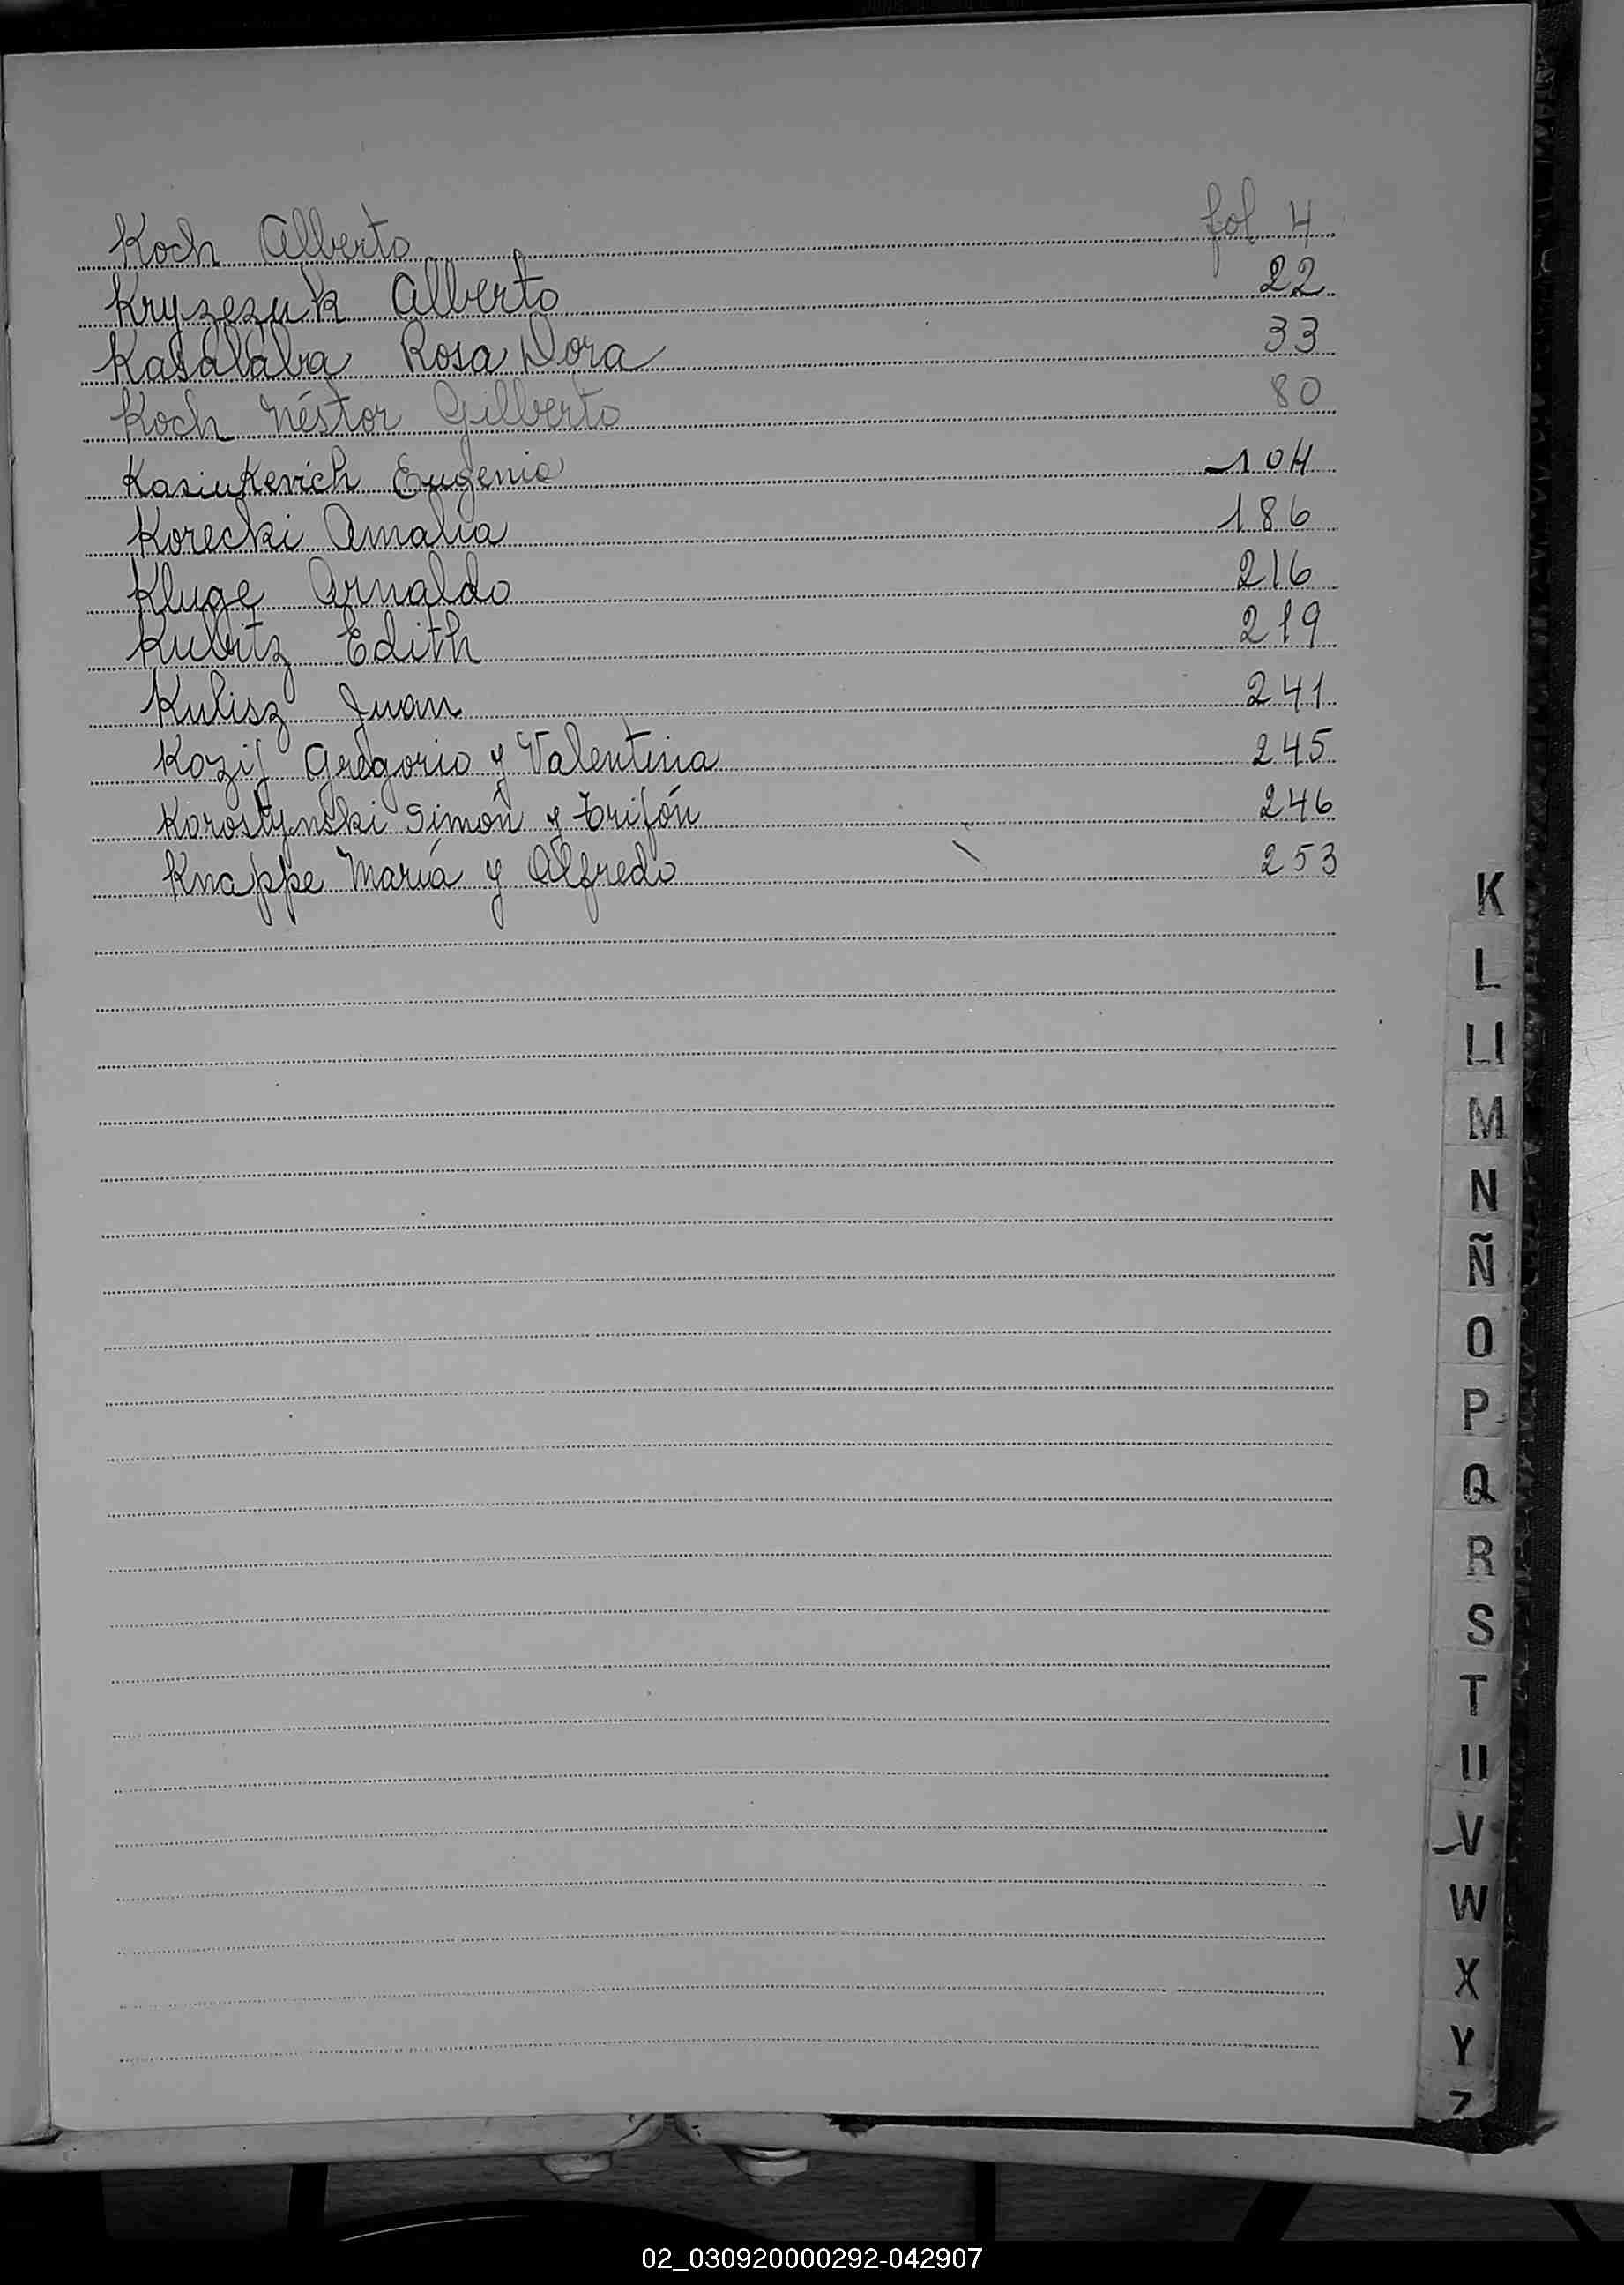 Koch Alberto fol 4
Kryzezuk Alberto 22
Kasalaba Rosa Dora 33
Koch Néstor Gilberto 80
Kasiukevich Eugenio 104
Korecki Amalia 186
Kluge Arnaldo 216
Kubitz Edith 219
Kulisz Juan 241
Kozij Gregorio y Valentina 245
Korostynski Simón y Trifón 246
Knappe María y Alfredo 253
K
L
Ll
M
N
Ñ
O
P
Q
R
S
T
U
V
W
X
Y
Z
02_030920000292-042907